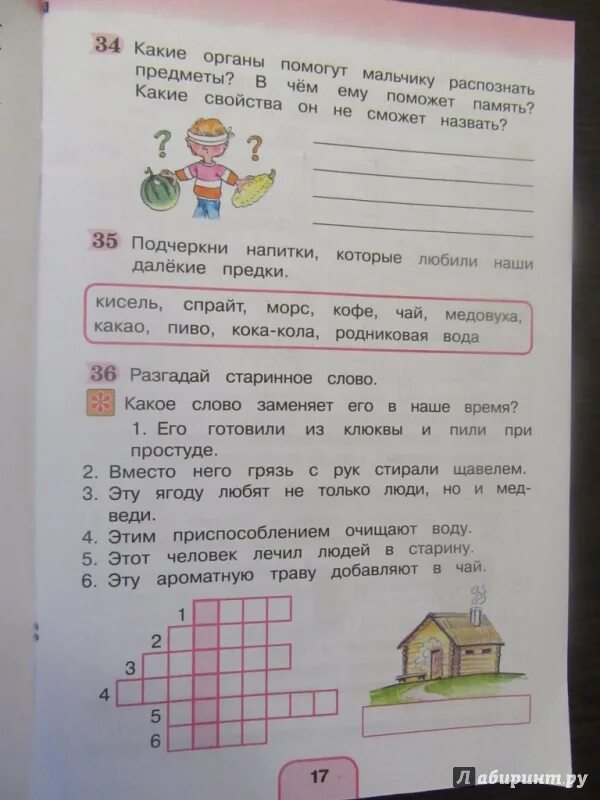 34 Какие органы помогут мальчику распознать
предметы? В чём ему поможет память?
Какие свойства он не сможет назвать?
? ?
35 Подчеркни напитки, которые любили наши
далёкие предки.
кисель, спрайт, морс, кофе, чай, медовуха,
какао, пиво, кока-кола, родниковая вода
36 Разгадай старинное слово.
Какое слово заменяет его в наше время?
1. Его готовили из клюквы и пили при
простуде.
2. Вместо него грязь с рук стирали щавелем.
3. Эту ягоду любят не только люди, но и мед-
веди.
4. Этим приспособлением очищают воду.
5. Этот человек лечил людей в старину.
6. Эту ароматную траву добавляют в чай.
1
2
3
4
5
6
17
Лабиринт.ру